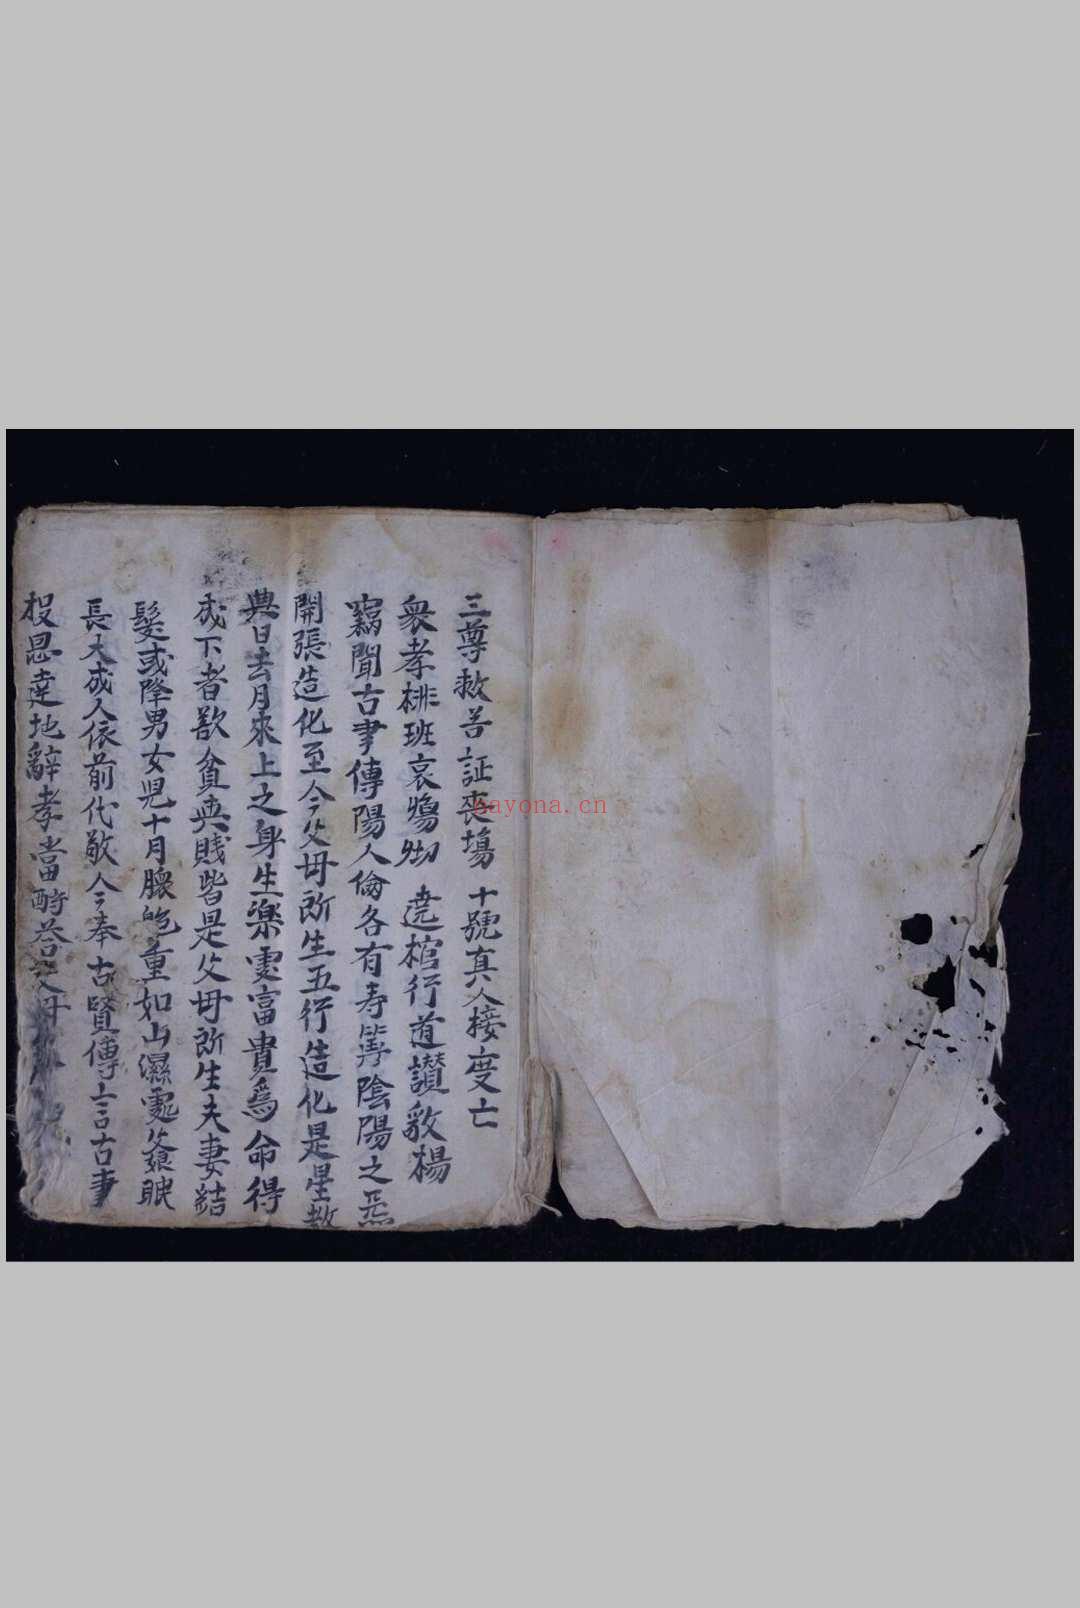 三尊救苦証喪場 十號真人接度亡
衆孝排班哀 遶棺行道讃敎楊
竊聞古事傳陽人倫各有寿筭陰陽之
開張造化至今父母所生五行造化是星教
典日去月來上之身生樂處富貴爲命得
成下者歎貧與賤皆是父母所生夫妻結
髮或降男女児十月懷胎重如山濕處眠
長大成人依前代敬今奉古賢傳言古事
恩遶地辭孝當酧答父母
nayona.cn